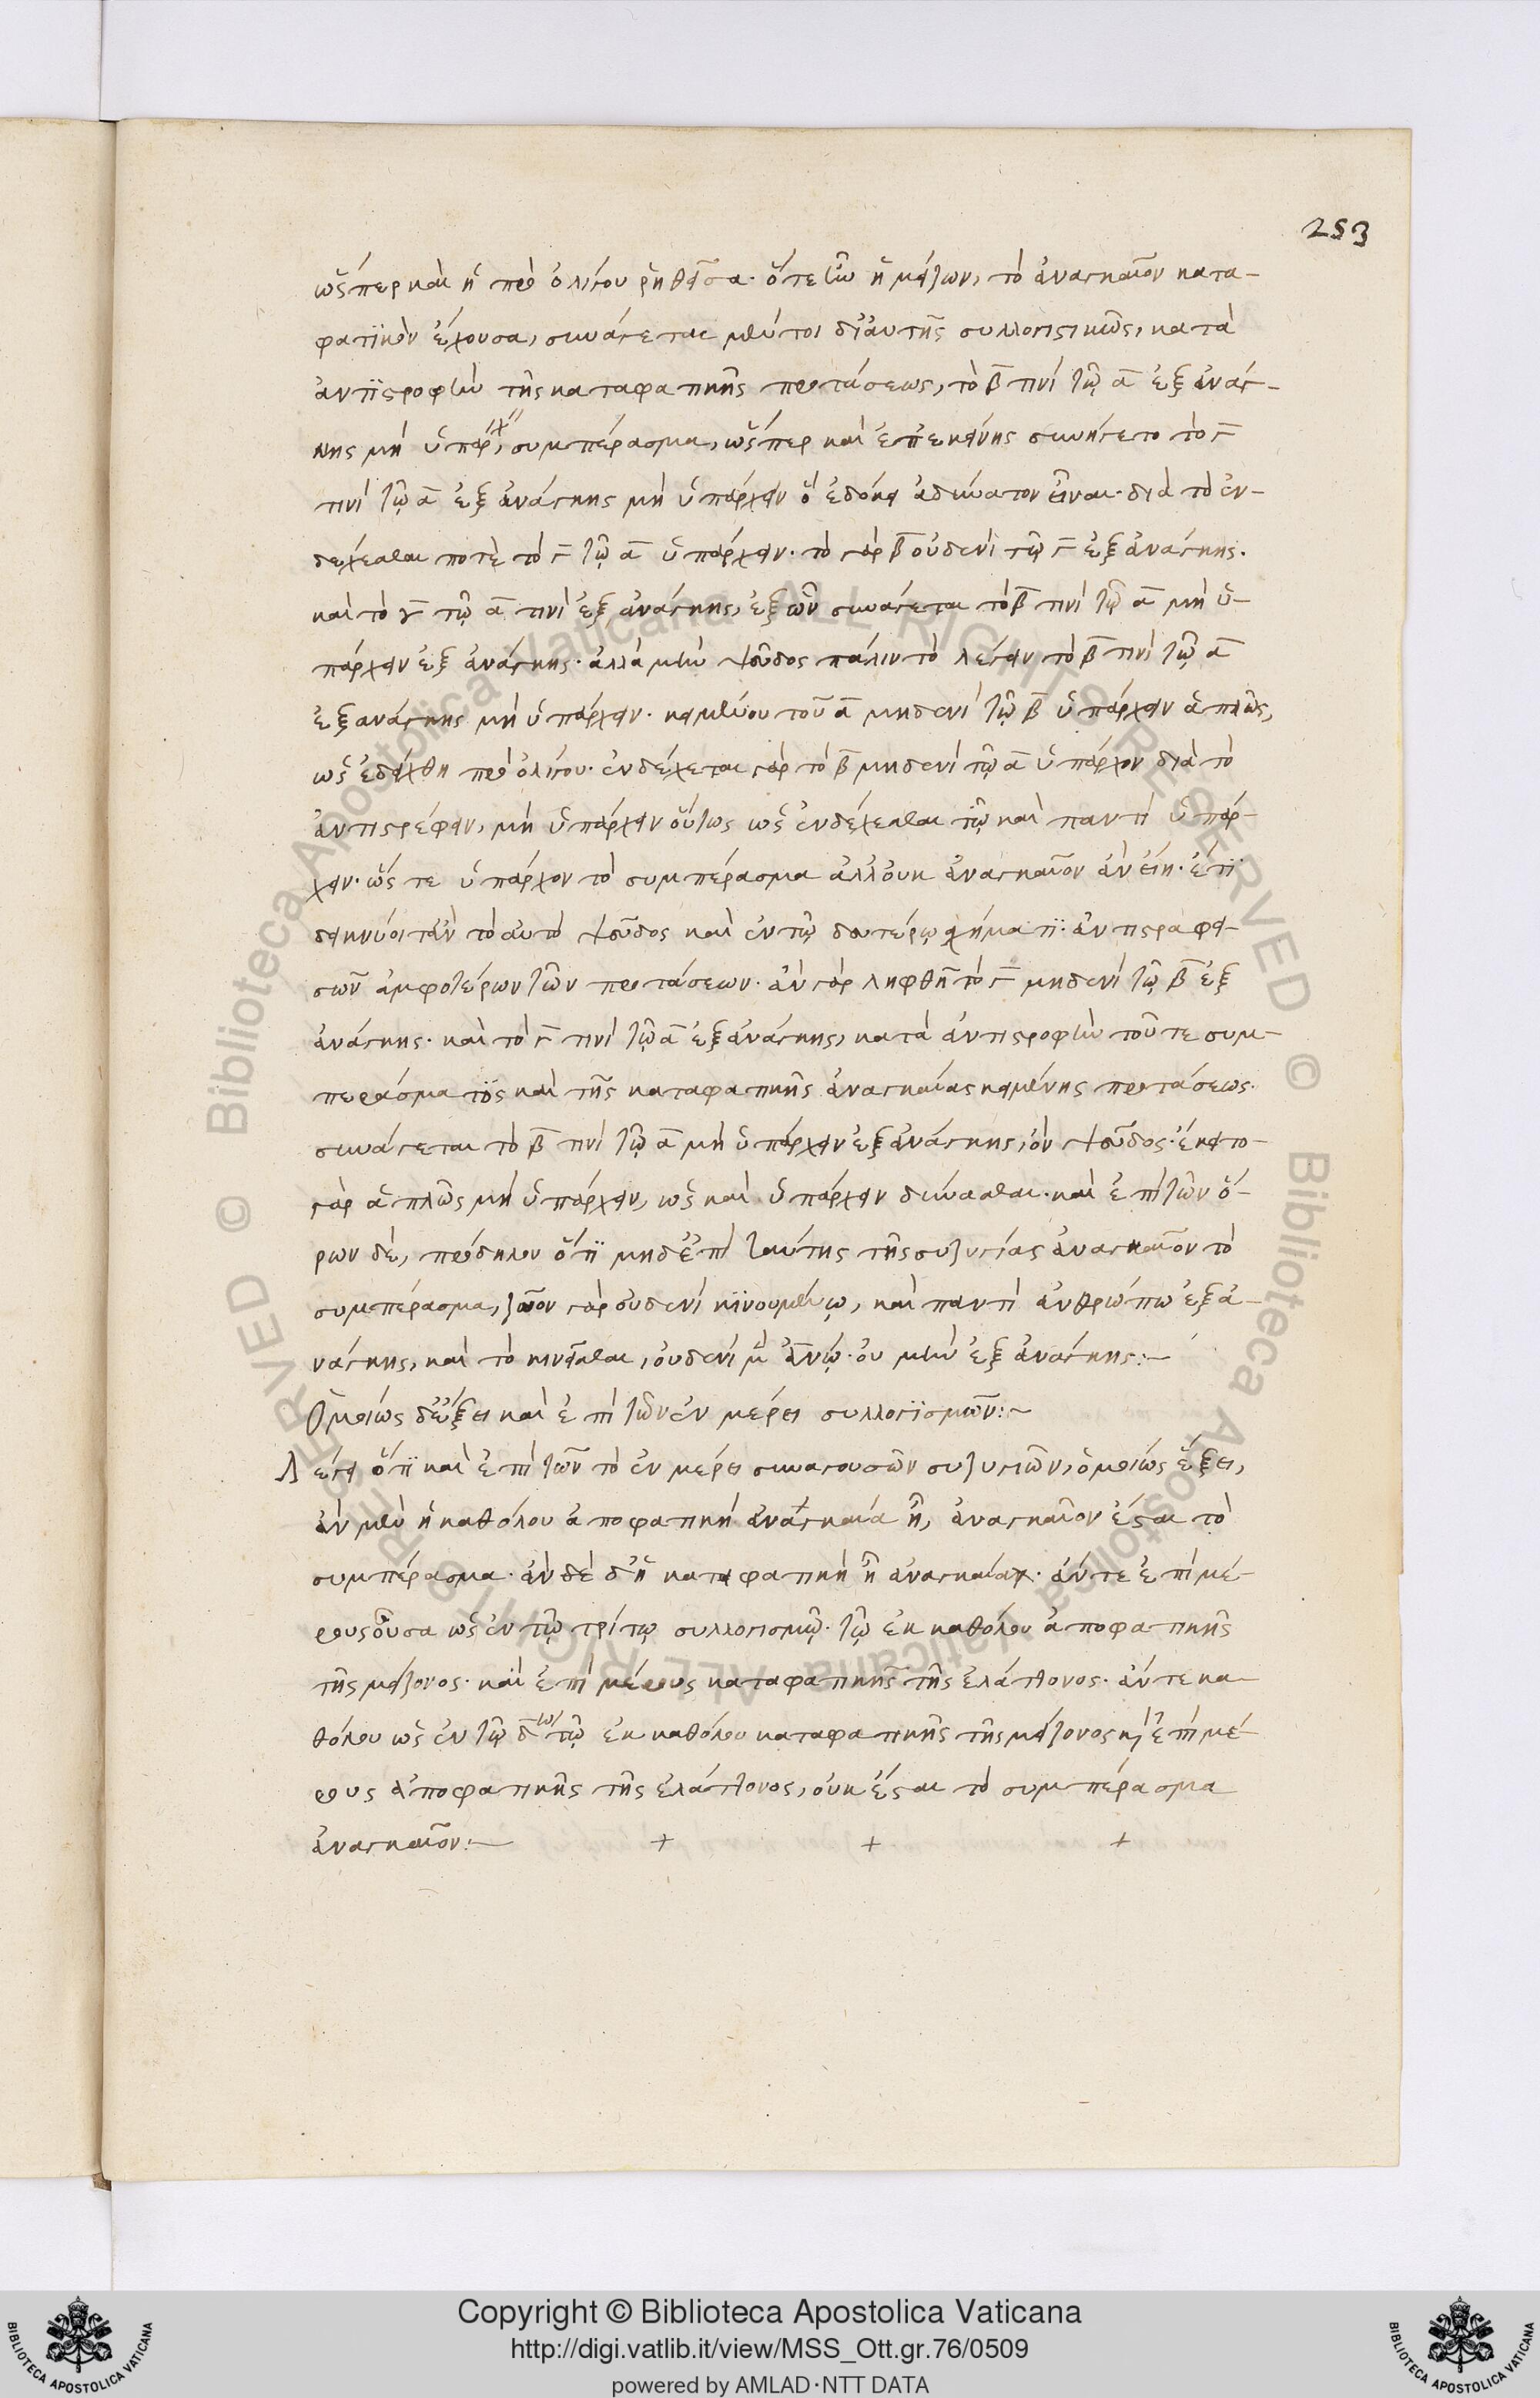 253
ὥσπερ καὶ ἡ πρὸ ὀλίγου ῥηθεῖσα. ὅτε ἦν ἡ μείζων, τὸ ἀναγκαῖον κατα-
φατικὸν ἔχουσα, συνάγεται μέντοι δι' αὐτῆς συλλογιστικῶς, κατὰ
ἀντιστροφὴν τῆς καταφατικῆς προτάσεως, τὸ β τινὶ τῷ α ἐξ ἀνάγ-
κης μὴ ὑπάρχ, συμπέρασμα, ὥσπερ καὶ ἐπ' ἐκείνης συνήγετο τὸ γ
τινὶ τῷ α ἐξ ἀνάγκης μὴ ὑπάρχειν ὃ ἐδόκει ἀδύνατον εἶναι. διὰ τὸ ἐν-
δέχεσθαι ποτὲ τὸ γ τῷ α ὑπάρχειν. τὸ γὰρ β οὐδενὶ τῷ γ ἐξ ἀνάγκης.
καὶ τὸ γ τῷ α τινὶ ἐξ ἀνάγκης, ἐξ ὧν συνάγεται τὸ β τινὶ τῷ α μὴ ὑ-
πάρχειν ἐξ ἀνάγκης. ἀλλὰ μὴν ψεῦδος πάλιν τὸ λέγειν τὸ β τινὶ τῷ α
ἐξ ἀνάγκης μὴ ὑπάρχειν. κειμένου τοῦ α μηδενὶ τῷ β ὑπάρχειν ἁπλῶς,
ὡς ἐδείχθη πρὸ ὀλίγου. ἐνδέχεται γὰρ τὸ β μηδενὶ τῷ α ὑπάρχον διὰ τὸ
ἀντιστρέφειν, μὴ ὑπάρχειν οὕτως ὡς ἐνδέχεσθαι τῷ καὶ παντὶ ὑπάρ-
χειν. ὥστε ὑπάρχον τὸ συμπέρασμα ἀλλ' οὐκ ἀναγκαῖον ἂν εἴη. ἔτι
δεικνύοιτ' ἂν τὸ αὐτὸ ψεῦδος καὶ ἐν τῷ δευτέρῳ σχήματι. ἀντιστραφει-
σῶν ἀμφοτέρων τῶν προτάσεων. ἂν γὰρ ληφθῇ τὸ γ μηδενὶ τῷ β ἐξ
ἀνάγκης. καὶ τὸ γ τινὶ τῷ α ἐξ ἀνάγκης, κατὰ ἀντιστροφὴν τοῦ τε συμ-
περάσματος καὶ τῆς καταφατικῆς ἀναγκαίας κειμένης προτάσεως.
συνάγεται τὸ β τινὶ τῷ α μὴ ὑπάρχειν ἐξ ἀνάγκης, ὂν ψεῦδος. ἔκειτο
γὰρ ἁπλῶς μὴ ὑπάρχειν, ὡς καὶ ὑπάρχειν δύνασθαι. καὶ ἐπὶ τῶν ὅ-
ρων δὲ, πρόδηλον ὅτι μηδ' ἐπὶ ταύτης τῆς συζυγίας ἀναγκαῖον τὸ
συμπέρασμα, ζῷον γὰρ οὐδενὶ κινουμένῳ, καὶ παντὶ ἀνθρώπω ἐξ ἀ-
νάγκης, καὶ τὸ κινεῖσθαι, οὐδενὶ μὲν ἀνῳ. οὐ μὴν ἐξ ἀνάγκης:-
Ὁμοίως δ' ἕξει καὶ ἐπὶ τῶν ἐν μέρει συλλογισμῶν:~
Λέγει ὅτι καὶ ἐπὶ τῶν τὸ ἐν μέρει συναγουσῶν συζυγιῶν, ὁμοίως ἕξει,
ἂν μὲν ἡ καθόλου ἀποφατικὴ ἀναγκαία ᾖ, ἀναγκαῖον ἔσται τὸ
συμπέρασμα. ἂν δὲ δ' ἡ καταφατικὴ ᾖ ἀναγκαία. ἄν τε ἐπὶ μέ-
ρους οὖσα ὡς ἐν τῷ τρίτῳ συλλογισμῷ. τῷ ἐκ καθόλου ἀποφατικῆς
τῆς μείζονος. καὶ ἐπὶ μέρους καταφατικῆς τῆς ἐλάττονος. ἄν τε κα-
θόλου ὡς ἐν τῷ δω τῷ ἐκ καθόλου καταφατικῆς τῆς μείζονος κ ἐπὶ μέ-
ρους ἀποφατικῆς τῆς ἐλάττονος, οὐκ ἔσται τὸ συμπέρασμα
ἀναγκαῖον:- + + +
© Biblioteca Apostolica Vaticana ALL RIGHTS RESERVED © Biblioteca Apostolica Vaticana ALL RIGHTS RESERVED
Copyright © Biblioteca Apostolica Vaticana
http://digi.vatlib.it/view/MSS_Ott.gr.76/0509
powered by AMLAD·NTT DATA
BIBLIOTECA APOSTOLICA VATICANA
BIBLIOTECA APOSTOLICA VATICANA